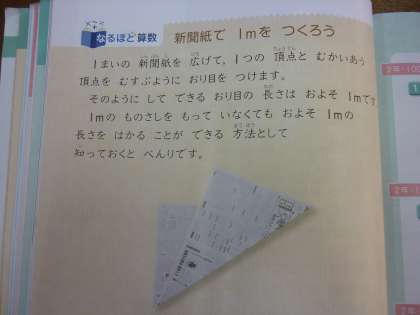 なるほど算数 新聞紙で 1mを つくろう
1まいの 新聞紙を 広げて、1つの 頂点と むかいあう
頂点を むすぶように おり目を つけます。
そのように して できる おり目の 長さは およそ 1mです
1mの ものさしを もって いなくても およそ 1mの
長さを はかる ことが できる 方法として
知っておくと べんりです。
2年
2年
2年